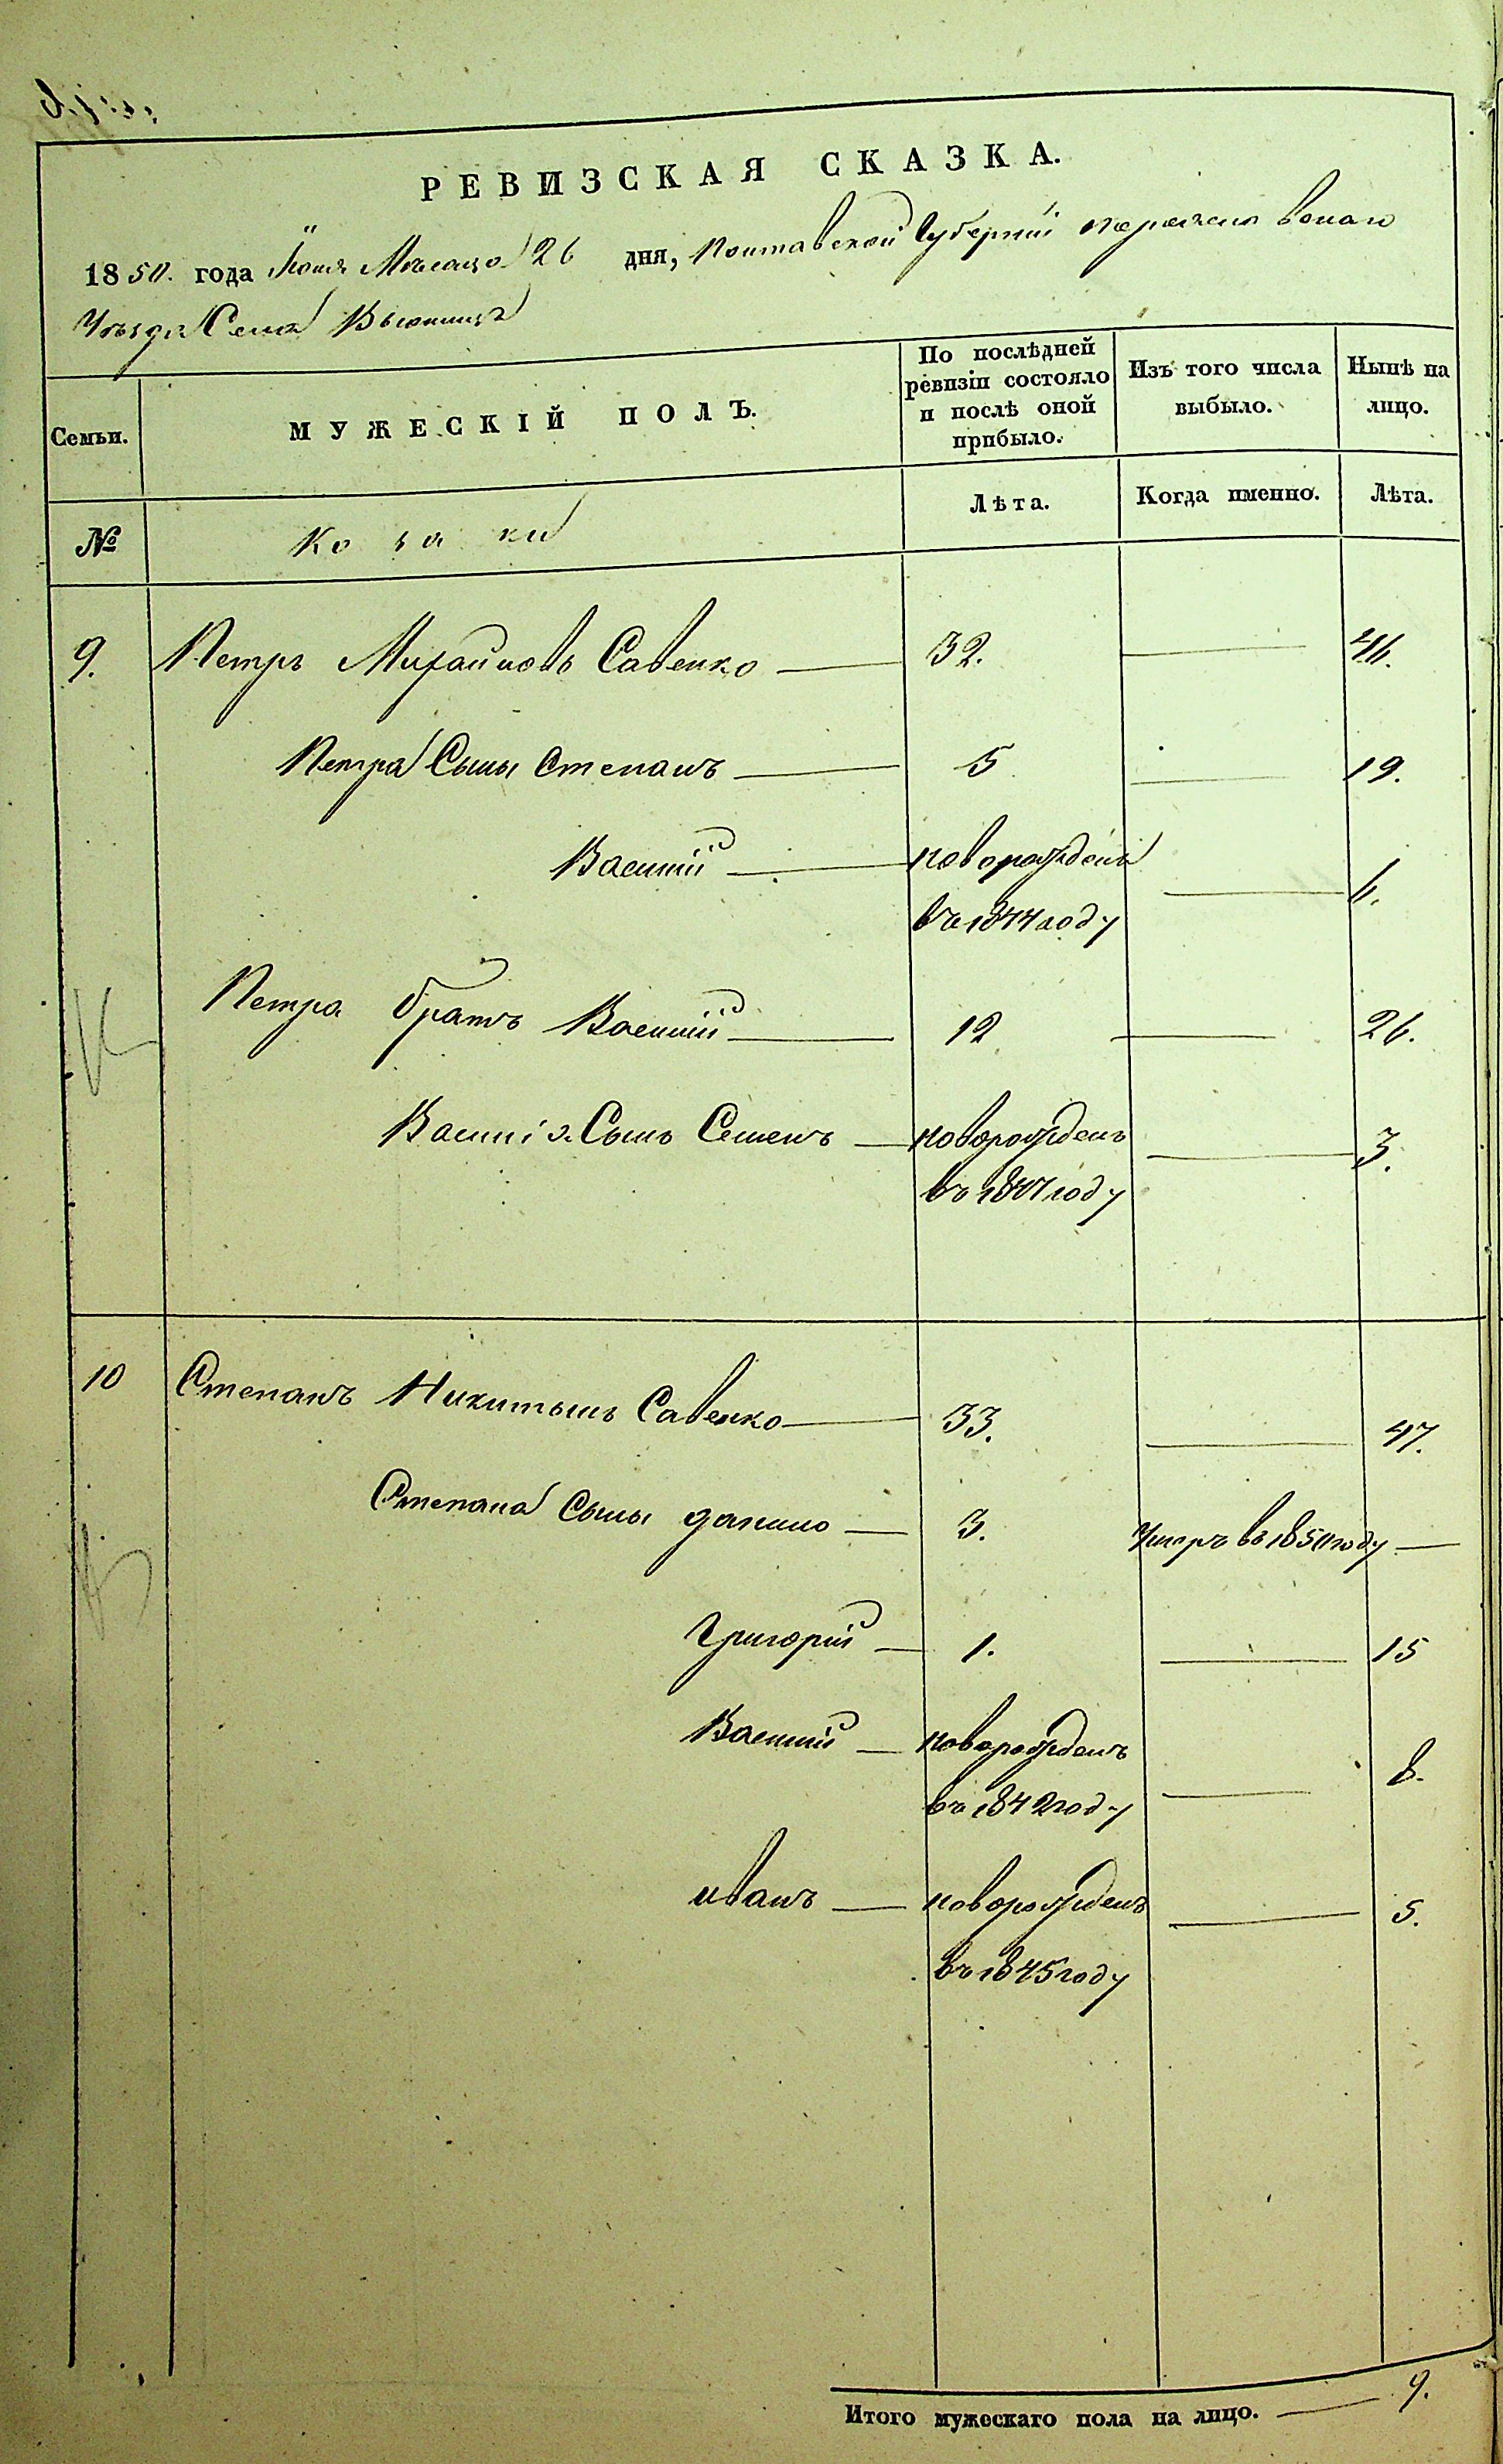 РЕВИЗСКАЯ СКАЗКА.
1850. года Іюня Мѣсяца 26 дня, Полтавской Губерніи Переяславскаго
Уѣзда Села Вьюнищъ
Семьи. МУЖЕСКІЙ ПОЛЪ. По послѣдней ревизіи состояло и послѣ оной прибыло. Изъ того числа выбыло. Нынѣ на лицо.
№ Козаки Лѣта. Когда именно. Лѣта.
9. Петръ Михайловъ Савенко — 32. — 46.
Петра Сыны Степанъ — 5 — 19.
Василій — новорожденъ
въ 1844 году — 6.
Петра братъ Василій — 12 — 26.
Василія Сынъ Семенъ — новорожденъ — 3.
въ 1847 году
10 Степанъ Никитынъ Савенко — 33. — 47.
Степана Сыны данило — 3. Умеръ въ 1850 году —
Григорій — 1. — 15
Василій — новорожденъ
въ 1842 году — 8.
иванъ — новорожденъ — 5.
въ 1845 году
Итого мужескаго пола на лицо. — 9.